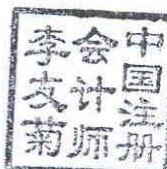 中国注册
会计师
李支菊